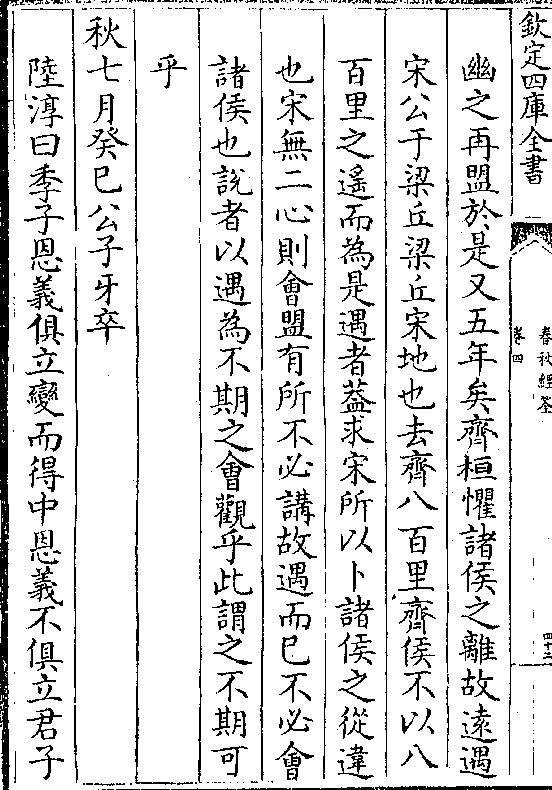 欽定四庫全書
春秋經筌
卷四
四十二
幽之再盟於是又五年矣齊桓懼諸侯之離故遠遇
宋公于梁丘梁丘宋地也去齊八百里齊侯不以八
百里之遙而為是遇者葢求宋所以卜諸侯之從違
也宋無二心則會盟有所不必講故遇而已不必會
諸侯也說者以遇為不期之會觀乎此謂之不期可
乎
秋七月癸巳公子牙卒
陸淳曰季子恩義俱立變而得中恩義不俱立君子